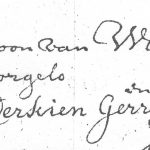 oon van W
orgelo
in
Derkien Gerr